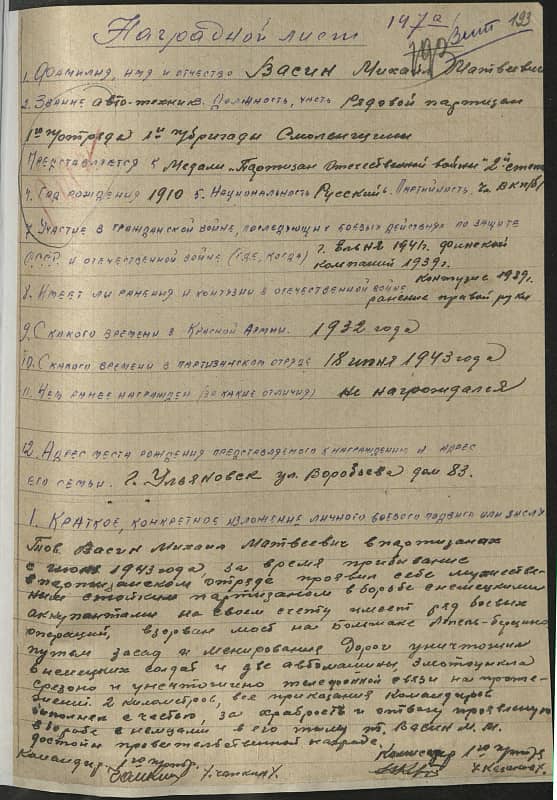 147а
193
Наградной лист
1. Фамилия, имя и отчество Васин Михаил Матвеевич
2. Звание авто-техник 3. Должность, часть Рядовой партизан
1го отряда 1й бригады Смоленщины
Представляется к Медали „Партизан Отечественной войны" 2й степ
4. Год рождения 1910 5. Национальность Русский 6. Партийность чл ВКП/б/
7. Участие в гражданской войне, последующих боевых действиях по защите
СССР и отечественной войне (где, когда) г. Ельня 1941 г. финской
компании 1939 г.
8. Имеет ли ранения и контузии в отечественной войне контузия 1939 г.
ранение правой руки
9. С какого времени в Красной Армии. 1932 года
10. С какого времени в партизанском отряде 18 июня 1943 года
11. Чем ранее награжден (за какие отличия) не нагрождался
12. Адрес места рождения представляемого к награждению и адрес
его семьи. г. Ульяновск ул. Воробьева дом 83.
1. Краткое, конкретное изложение личного боевого подвига или заслуг
Тов. Васин Михаил Матвеевич в партизанах
с июня 1943 года за время прибывание
в партизанском отряде проявил себе мужествен-
ным стойким партизаном в борьбе с немецкими
аккупантами на своем счету имеет ряд боевых
операций, взорван мост на Лепель-Березино
путем засад и менирование дорог уничтожил
немецких солдат и две автомашины, 2 мотоцикла
срезоно и унечтожино телефонной связи на протя-
жении 2 километров, все приказания командиров
выполнял с честью, за храбрость и отвагу проявленную
в борьбе с немцами в его тылу т. Васин М.М.
достоин провительственной награде.
Командир 1го отр. Комисар 1го отряда
/Чапкин/ /Казаков/